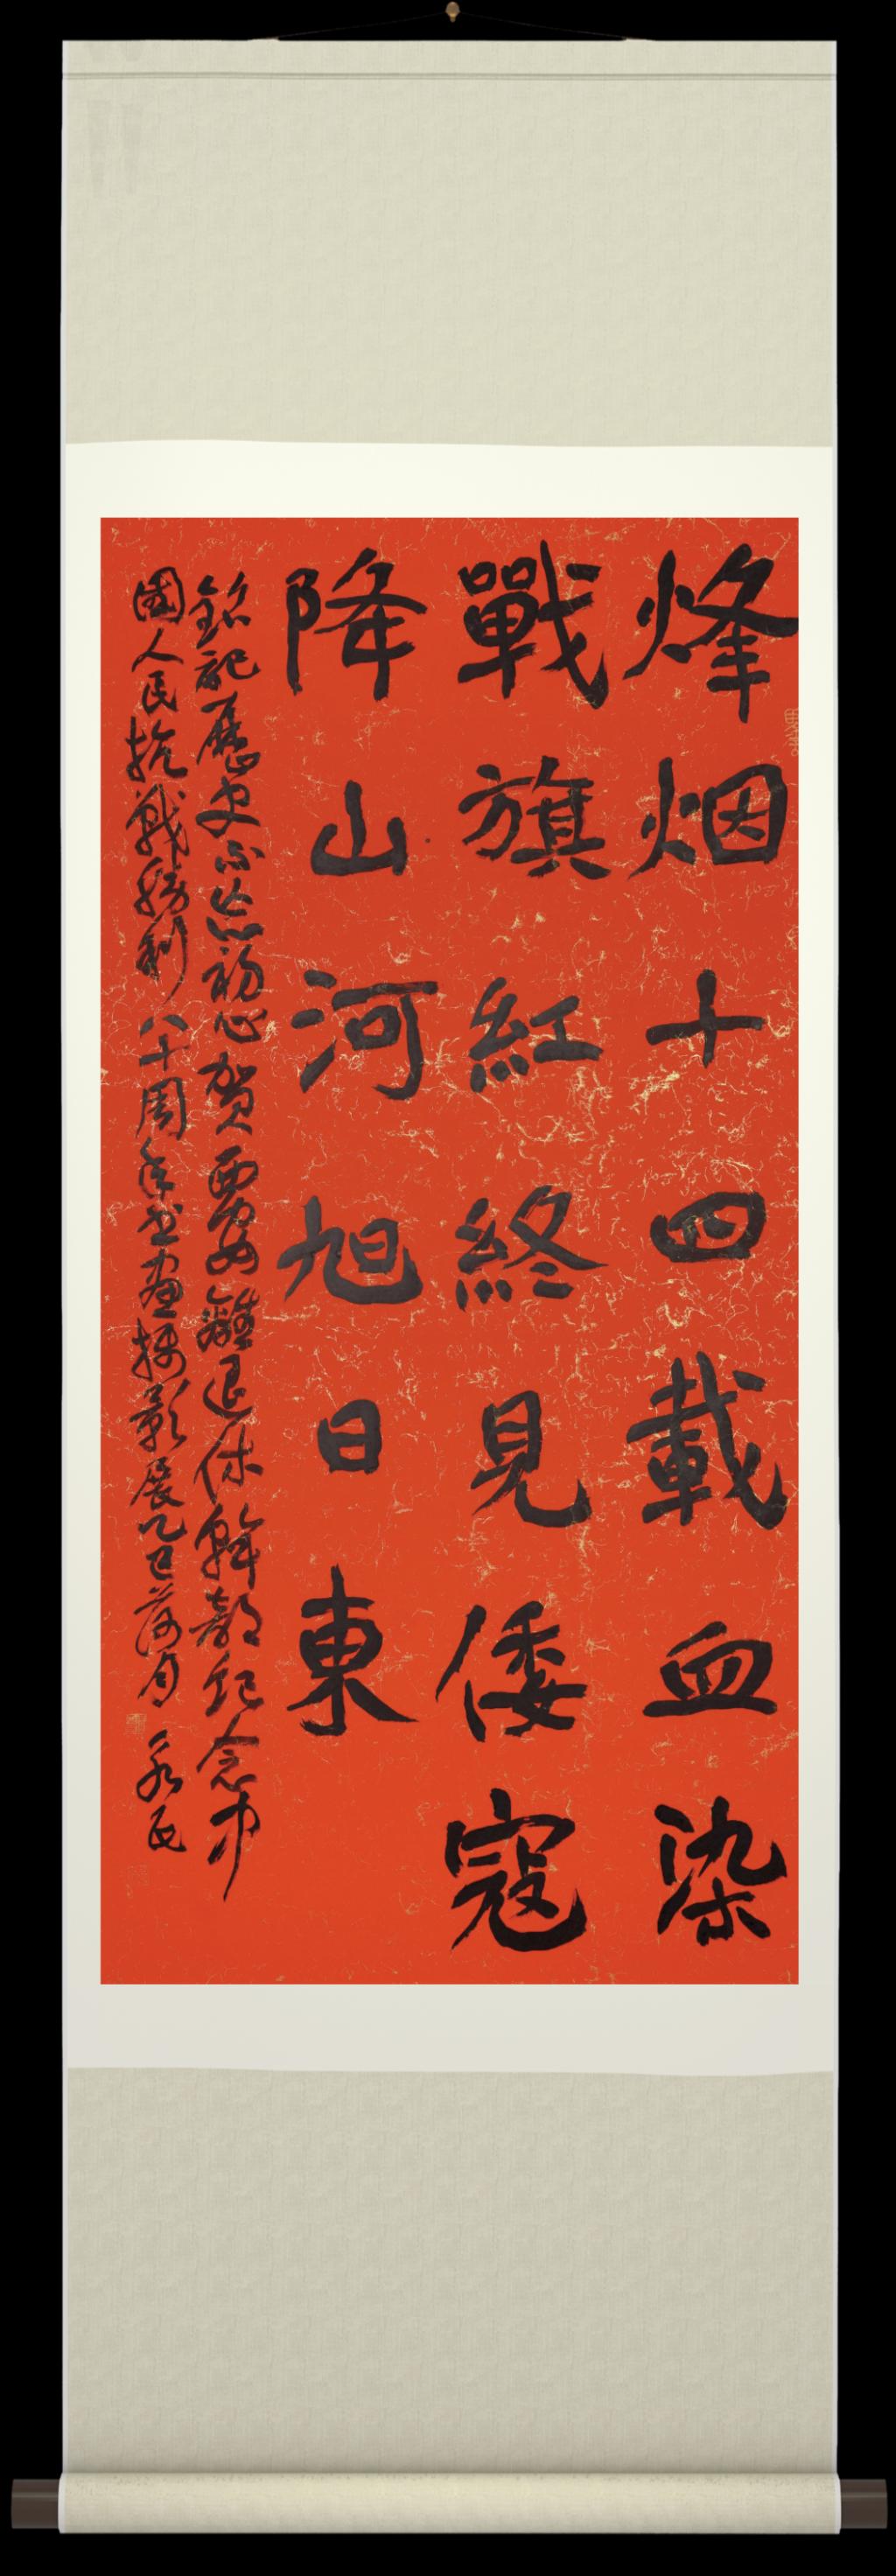 烽烟十四載血染
戰旗紅終見倭寇
降山河旭日東
銘記歷史不忘初心賀西安離退休幹部紀念中
國人民抗戰勝利八十周年書畫攝影展乙巳荷月 永民